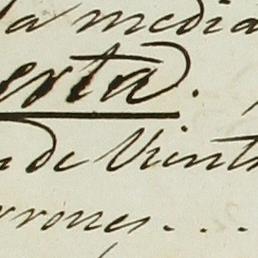 la media
erta.
a de Vient
rrones....